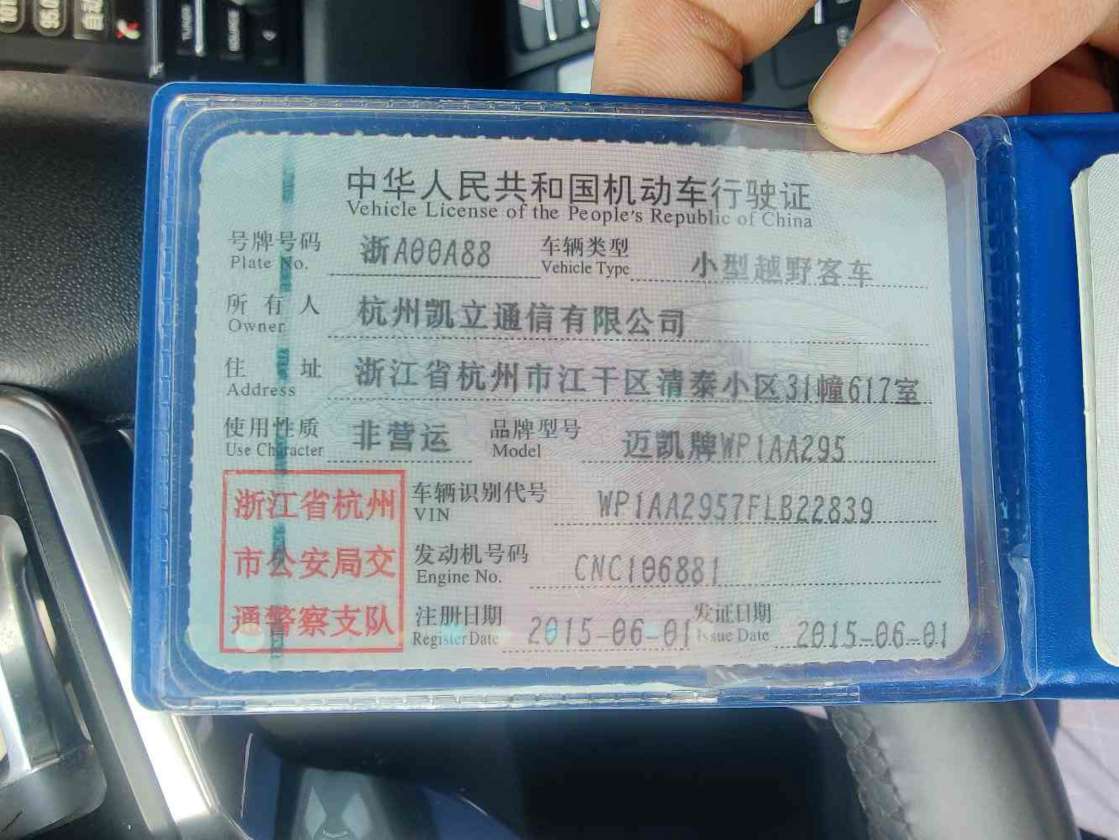 中华人民共和国机动车行驶证
Vehicle License of the People's Republic of China
号牌号码 浙A00A88 车辆类型 小型越野客车
Plate No. Vehicle Type
所有人 杭州凯立通信有限公司
Owner
住址 浙江省杭州市江干区清泰小区31幢617室
Address
使用性质 非营运 品牌型号 迈凯牌WP1AA295
Use Character Model
浙江省杭州
市公安局交
通警察支队
车辆识别代号 WP1AA2957FLB22839
VIN
发动机号码 CNC106881
Engine No.
注册日期 2015-06-01 发证日期 2015-06-01
Register Date Issue Date